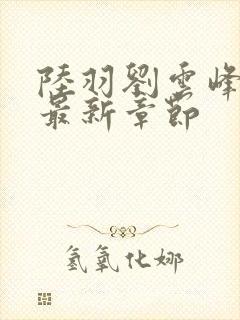 陸羽劉雲峰
最新章節
氢氧化娜